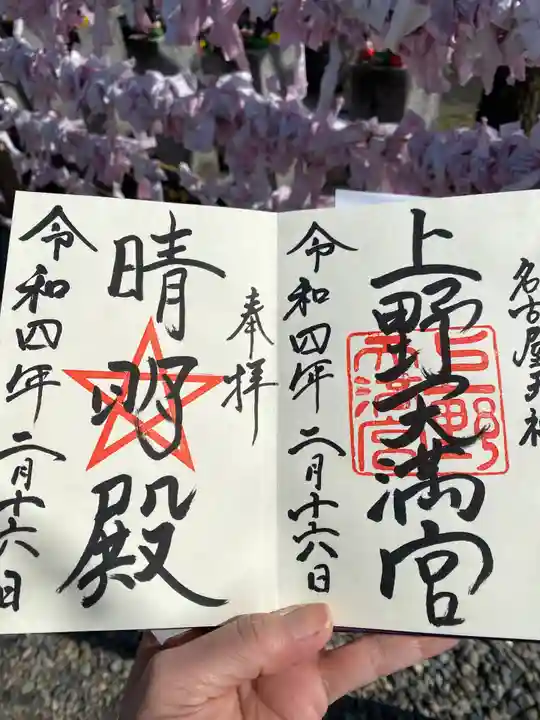 名古屋天神
上野天満宮
上野天満宮
令和四年二月十六日
奉拝
晴明殿
令和四年二月十六日